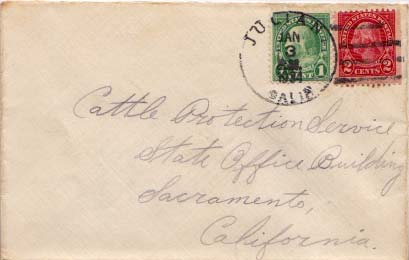 JULIAN
JAN
3
1934
CALIF.
1
UNITED STATES POSTAGE
2 CENTS 2
Cattle Protection Service
State Office Building
Sacramento,
California.